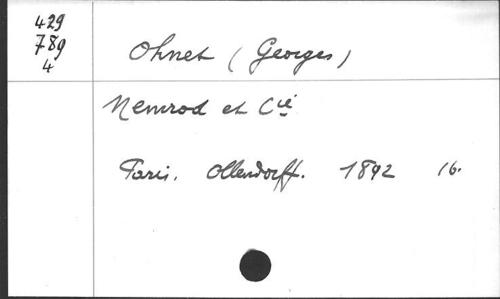 429
789
4
Ohnet (Georges)
Nemrod et Cie
Paris. Ollendorff. 1892 16.